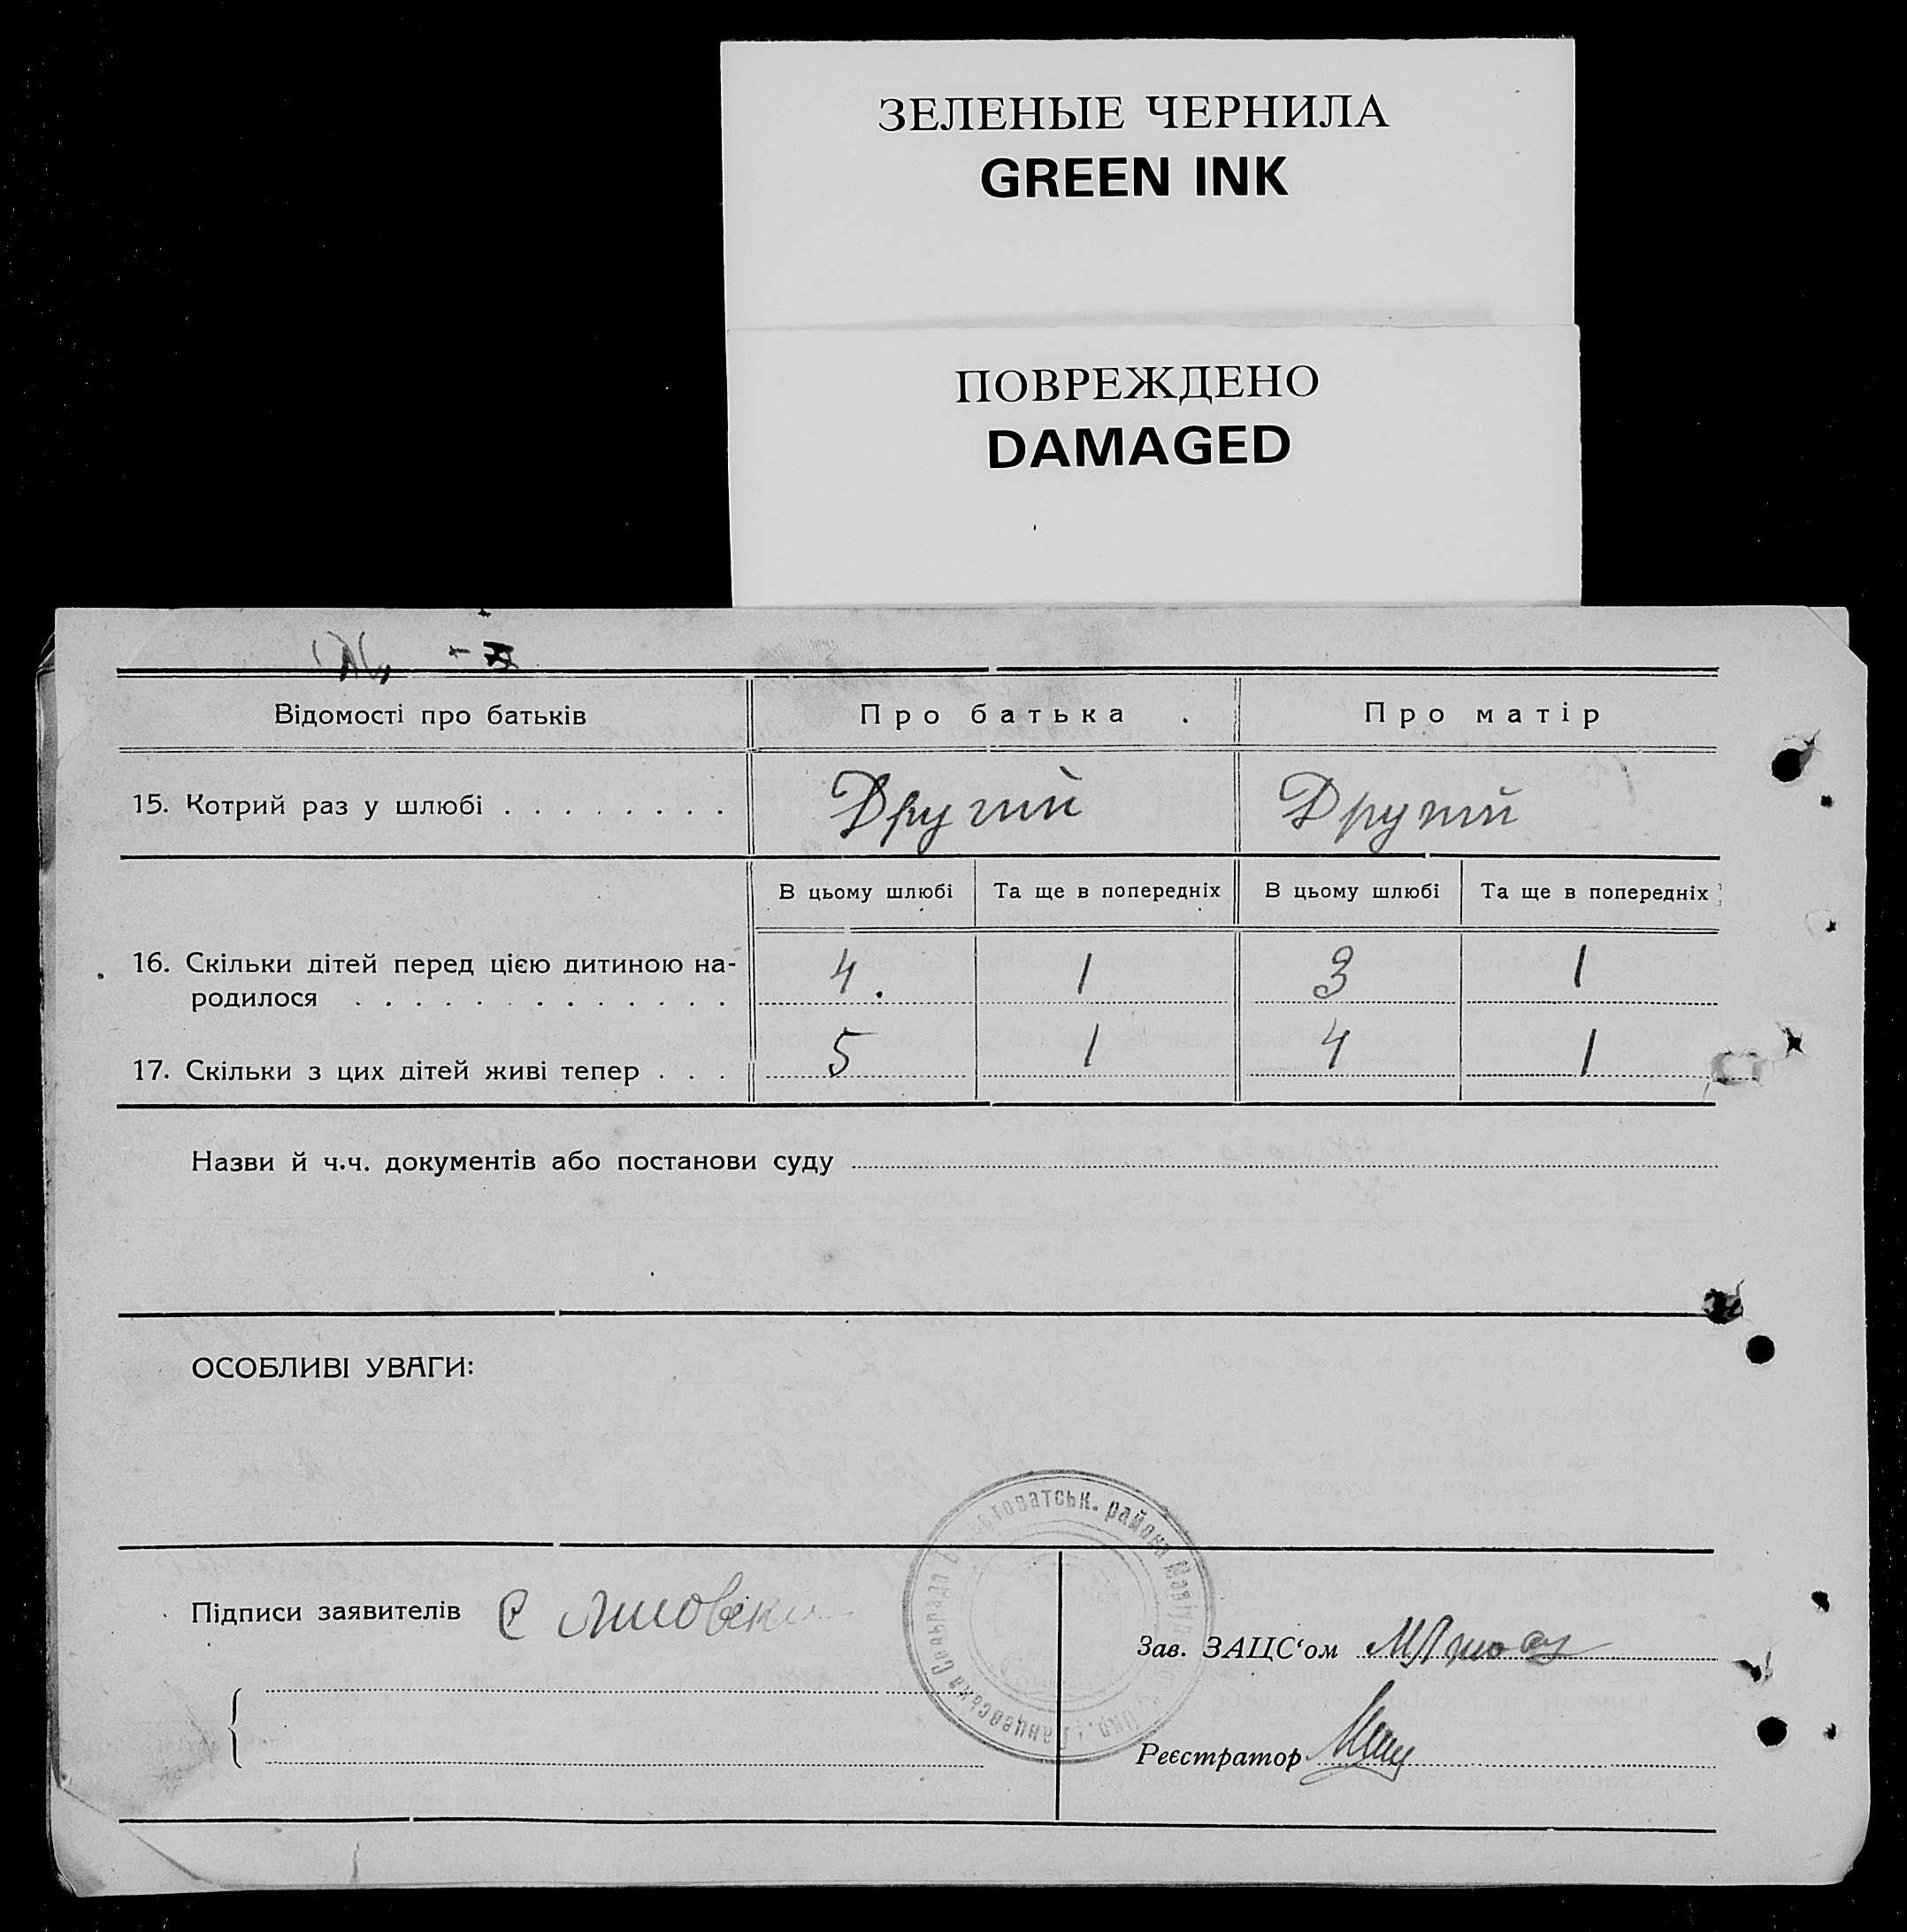 ЗЕЛЕНЫЕ ЧЕРНИЛА
GREEN INK
ПОВРЕЖДЕНО
DAMAGED
Відомості про батьків Про батька Про матір
15. Котрий раз у шлюбі Другий Другий
В цьому шлюбі Та ще в попередніх В цьому шлюбі Та ще в попередніх
16. Скільки дітей перед цією дитиною на-
родилося 4. 1 3 1
17. Скільки з цих дітей живі тепер 5 1 4 1
Назви й ч.ч. документів або постанови суду
ОСОБЛИВІ УВАГИ:
Підписи заявителів
Зав. ЗАЦС‘ом
Реєстратор
Сільрада района